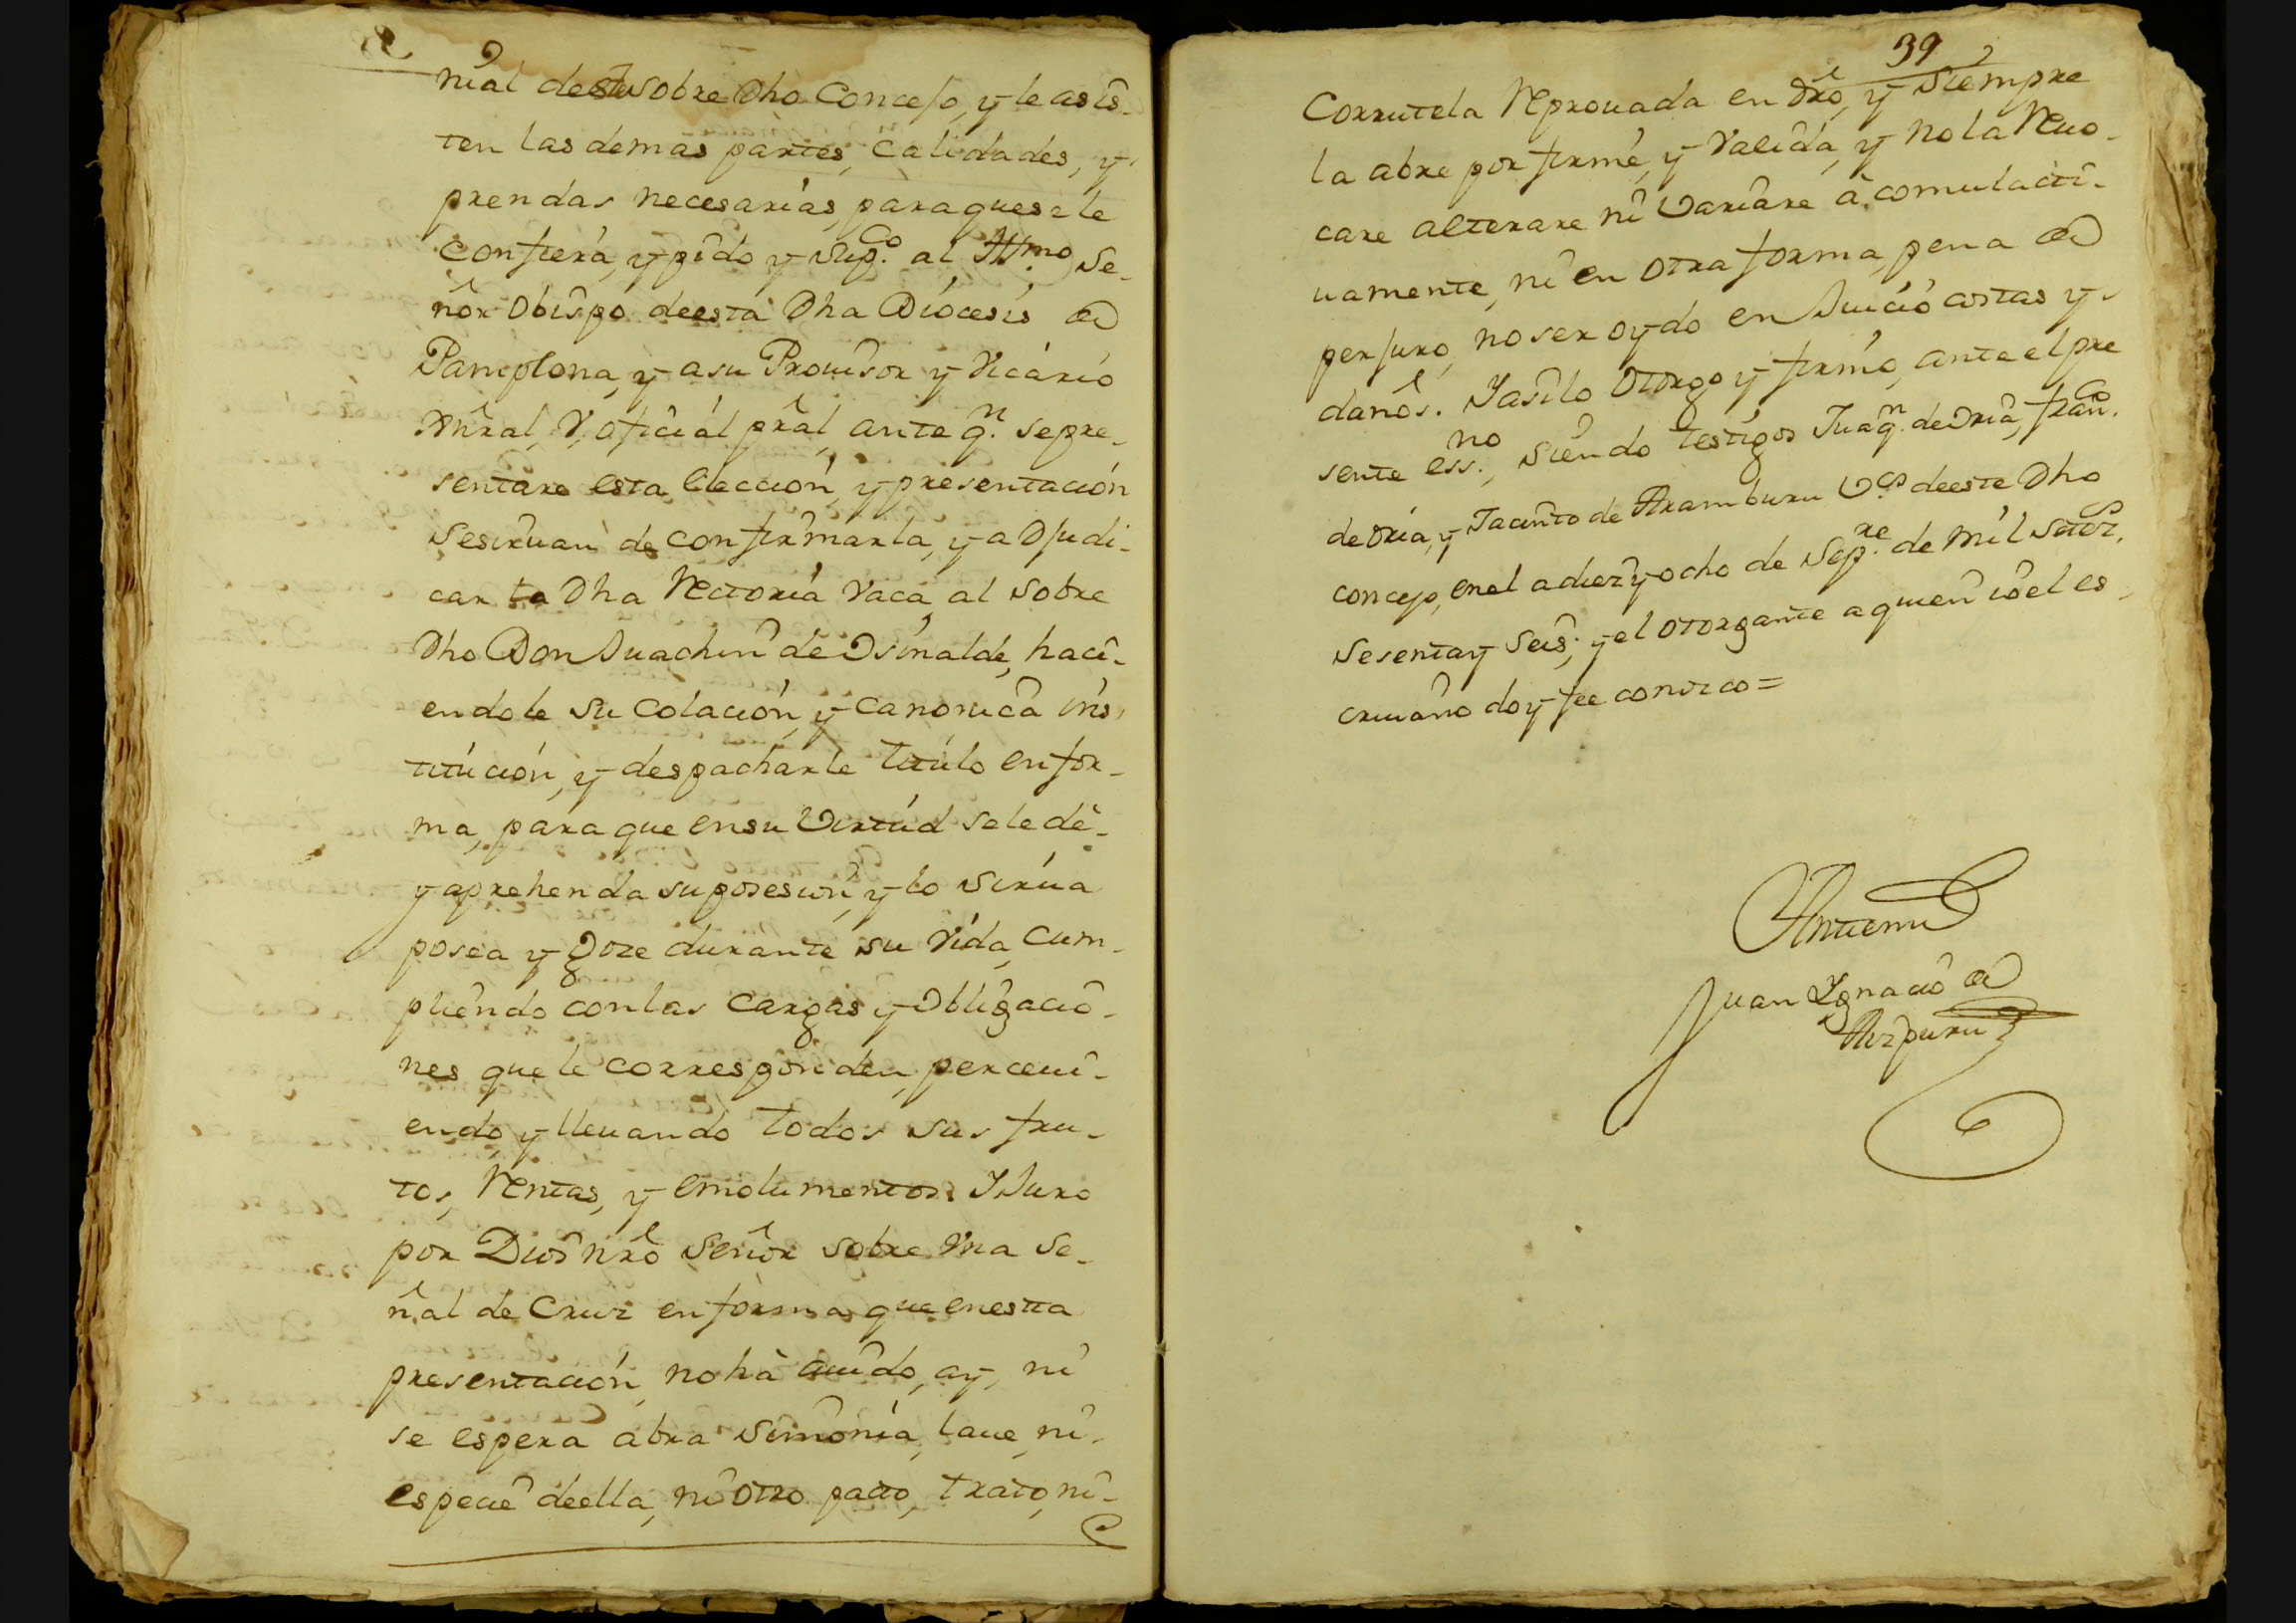 nial deeste sobre Dho Concejo, y le asis-
ten las demas partes, Calidades, y
prendas necesarias paraquesele
confiera, y pido y Sup.co al Ill.mo Se-
ñor Obispo deesta Dha Diocesis de
Pamplona, y asu Prouisor y Vicario
Gñral, V, oficial pral, ante q.n sepre-
sentare esta eleccion y presentación
sesiruan de confirmarla, y adjudi-
car la Dha Rectoria Vaca al sobre
Dho Don Juachin de Osinalde, haci-
endole su Colación, y Canonica ins-
titución, y despacharle titulo enfor-
ma, para que ensu Virtud selede-
y aprehenda suposesion, y lo sirua
posea y Goze durante su Vida, Cum-
pliendo conlas Cargas y Obligacio-
nes quele corresponden, perceui-
endo, y lleuando todos sus fru-
tos, Rentas, y emolumentos. Y Juro
por Dios nro Señor sobre Vna se-
ñal de Cruz enforma que enesta
presentación, no hà auido, ay, ni
se espera abra simonia, laue, ni
especie deella, ni otro pacto, trato, ni-
39
Corrutela Reprouada en dro, y siempre
la abre por firme, y Valida, y no la Reuo-
care alterare ni Variare à comulati-
uamente, ni en otra forma, pena de
perjuro, noser oydo en Juicio costas y
daños. Yasilo otorgo y firmo, ante el pre
sente ess.no, siendo testigos Juaq.n de Oria, fran.co
de Oria, y Jacinto de Aramburu V.os deeste Dho
concejo, enel adiezyocho de Sep.re de mil setez.s
sesentay seis; y el otorgante aquien ioel es-
criuano doy fee conozco =
Antemi
Juan Ygnacio de
Aizpuru